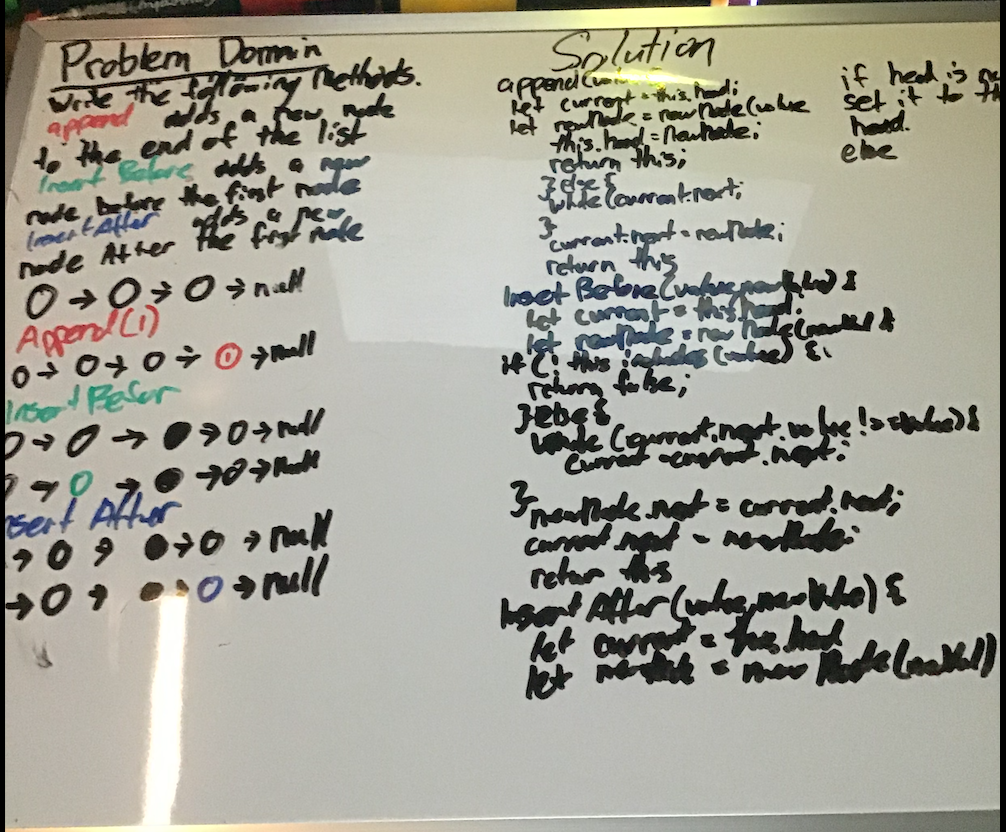 Problem Domain
write the following methods.
append adds a new node
to the end of the list
Insert Before adds a new
node before the first node
Insert After adds a new
node After the first node
O → O → O → null
Append(1)
O → O → O → 1 → null
Insert Befor
O → O → ● → O → null
O → O → ● → O → null
nsert After
→ O → ● → O → null
→ O → ● → O → null
Solution
append(
let current = this.head;
let newNode = new Node(value
this.head = NewNode;
return this;
} else {
while (current.next;
}
current.next = newNode;
return this
Insert Before (value, newValue) {
let current = this.head;
let newNode = new Node(newVal
if (! this includes (value) {
return false;
} else {
while (current.next.value !== value) {
current = current.next;
}
newNode.next = current.next;
current.next = newNode;
return this
Insert After (value, newValue) {
let current = this.head
let newNode = new Node(newVal)
if head is
set it to th
head.
else